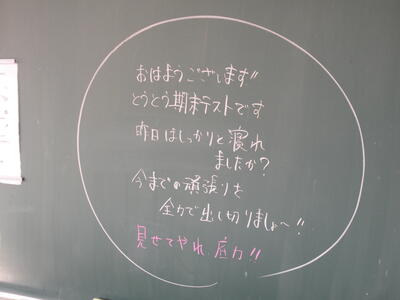 おはようございます!!
とうとう期末テストです
昨日はしっかりと寝れ
ましたか?
今までの頑張りを
全力で出し切りましょ〜!!
見せてやれ 底力!!